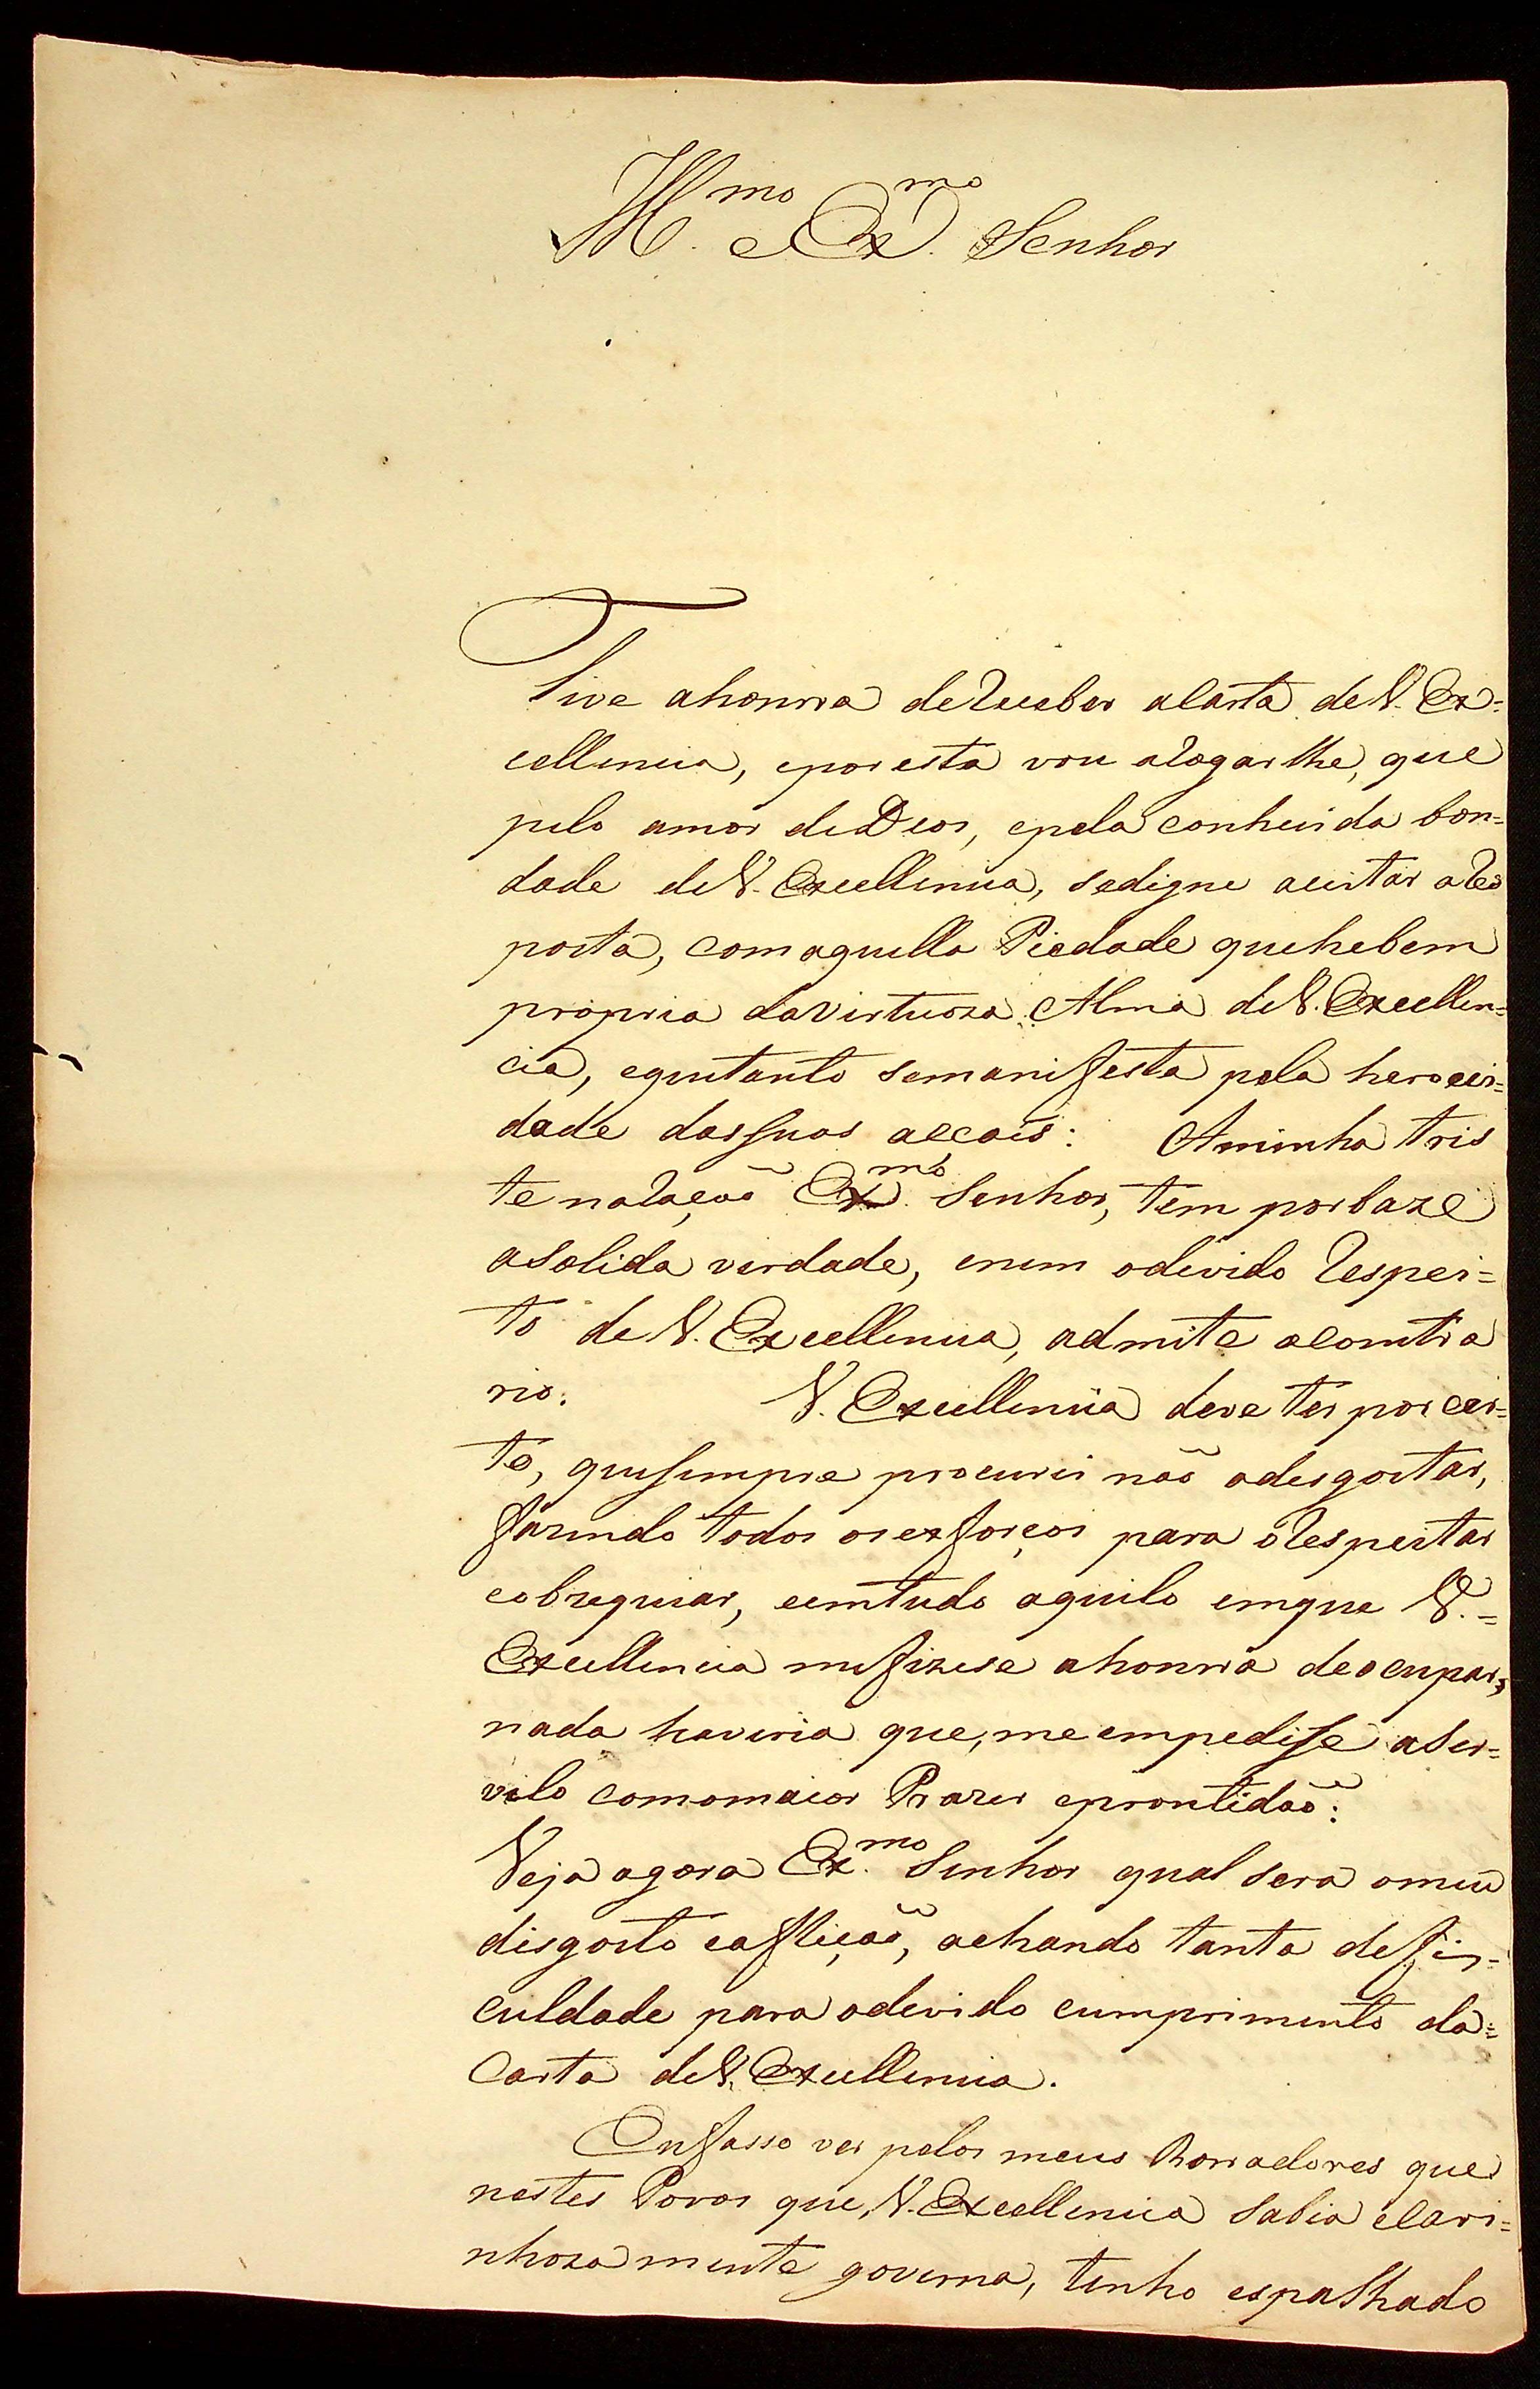 Ill.mo e Ex.mo Senhor
Tive ahonrra deReceber aCarta de V. Ex=
cellencia, eporesta vou aRogarlhe, que
pelo amor deDeos, epela conhecida bon=
dade deV. Excellencia, sedigne aceitar aRes
posta, comaquella Piedade quehebem
propria daVirtuoza Alma deV. Excellen=
cia, equetanto semanifesta pela heroeci=
dade dassuas accoẽs: Aminha tris
tenaRaçaõ Ex.mo Senhor, tem porbaze
asolida verdade, enem odevido Respei=
to de V. Excellencia, admite aContra
rio. V. Excellencia deve ter por cer=
to, quesempre procurei naõ odesgostar,
fazendo todos osexforços para oRespeitar
eobzequiar, eemtudo aquilo emque V.=
Excellencia mefizese ahonrra deocupar,
nada haveria que, me empedisse aSer=
vilo comomaior Prazer eprontidaõ:
Veja agora Ex.mo Senhor qual sera omeu
disgosto eafliçaõ, achando tanta defis=
culdade para odevido cumprimento da=
Carta deV. Excellencia.
Eufasso ver pelos meus Borradores que
nestes Povos que, V. Excellencia Sabia eCari=
nhozamente governa, tenho espalhado